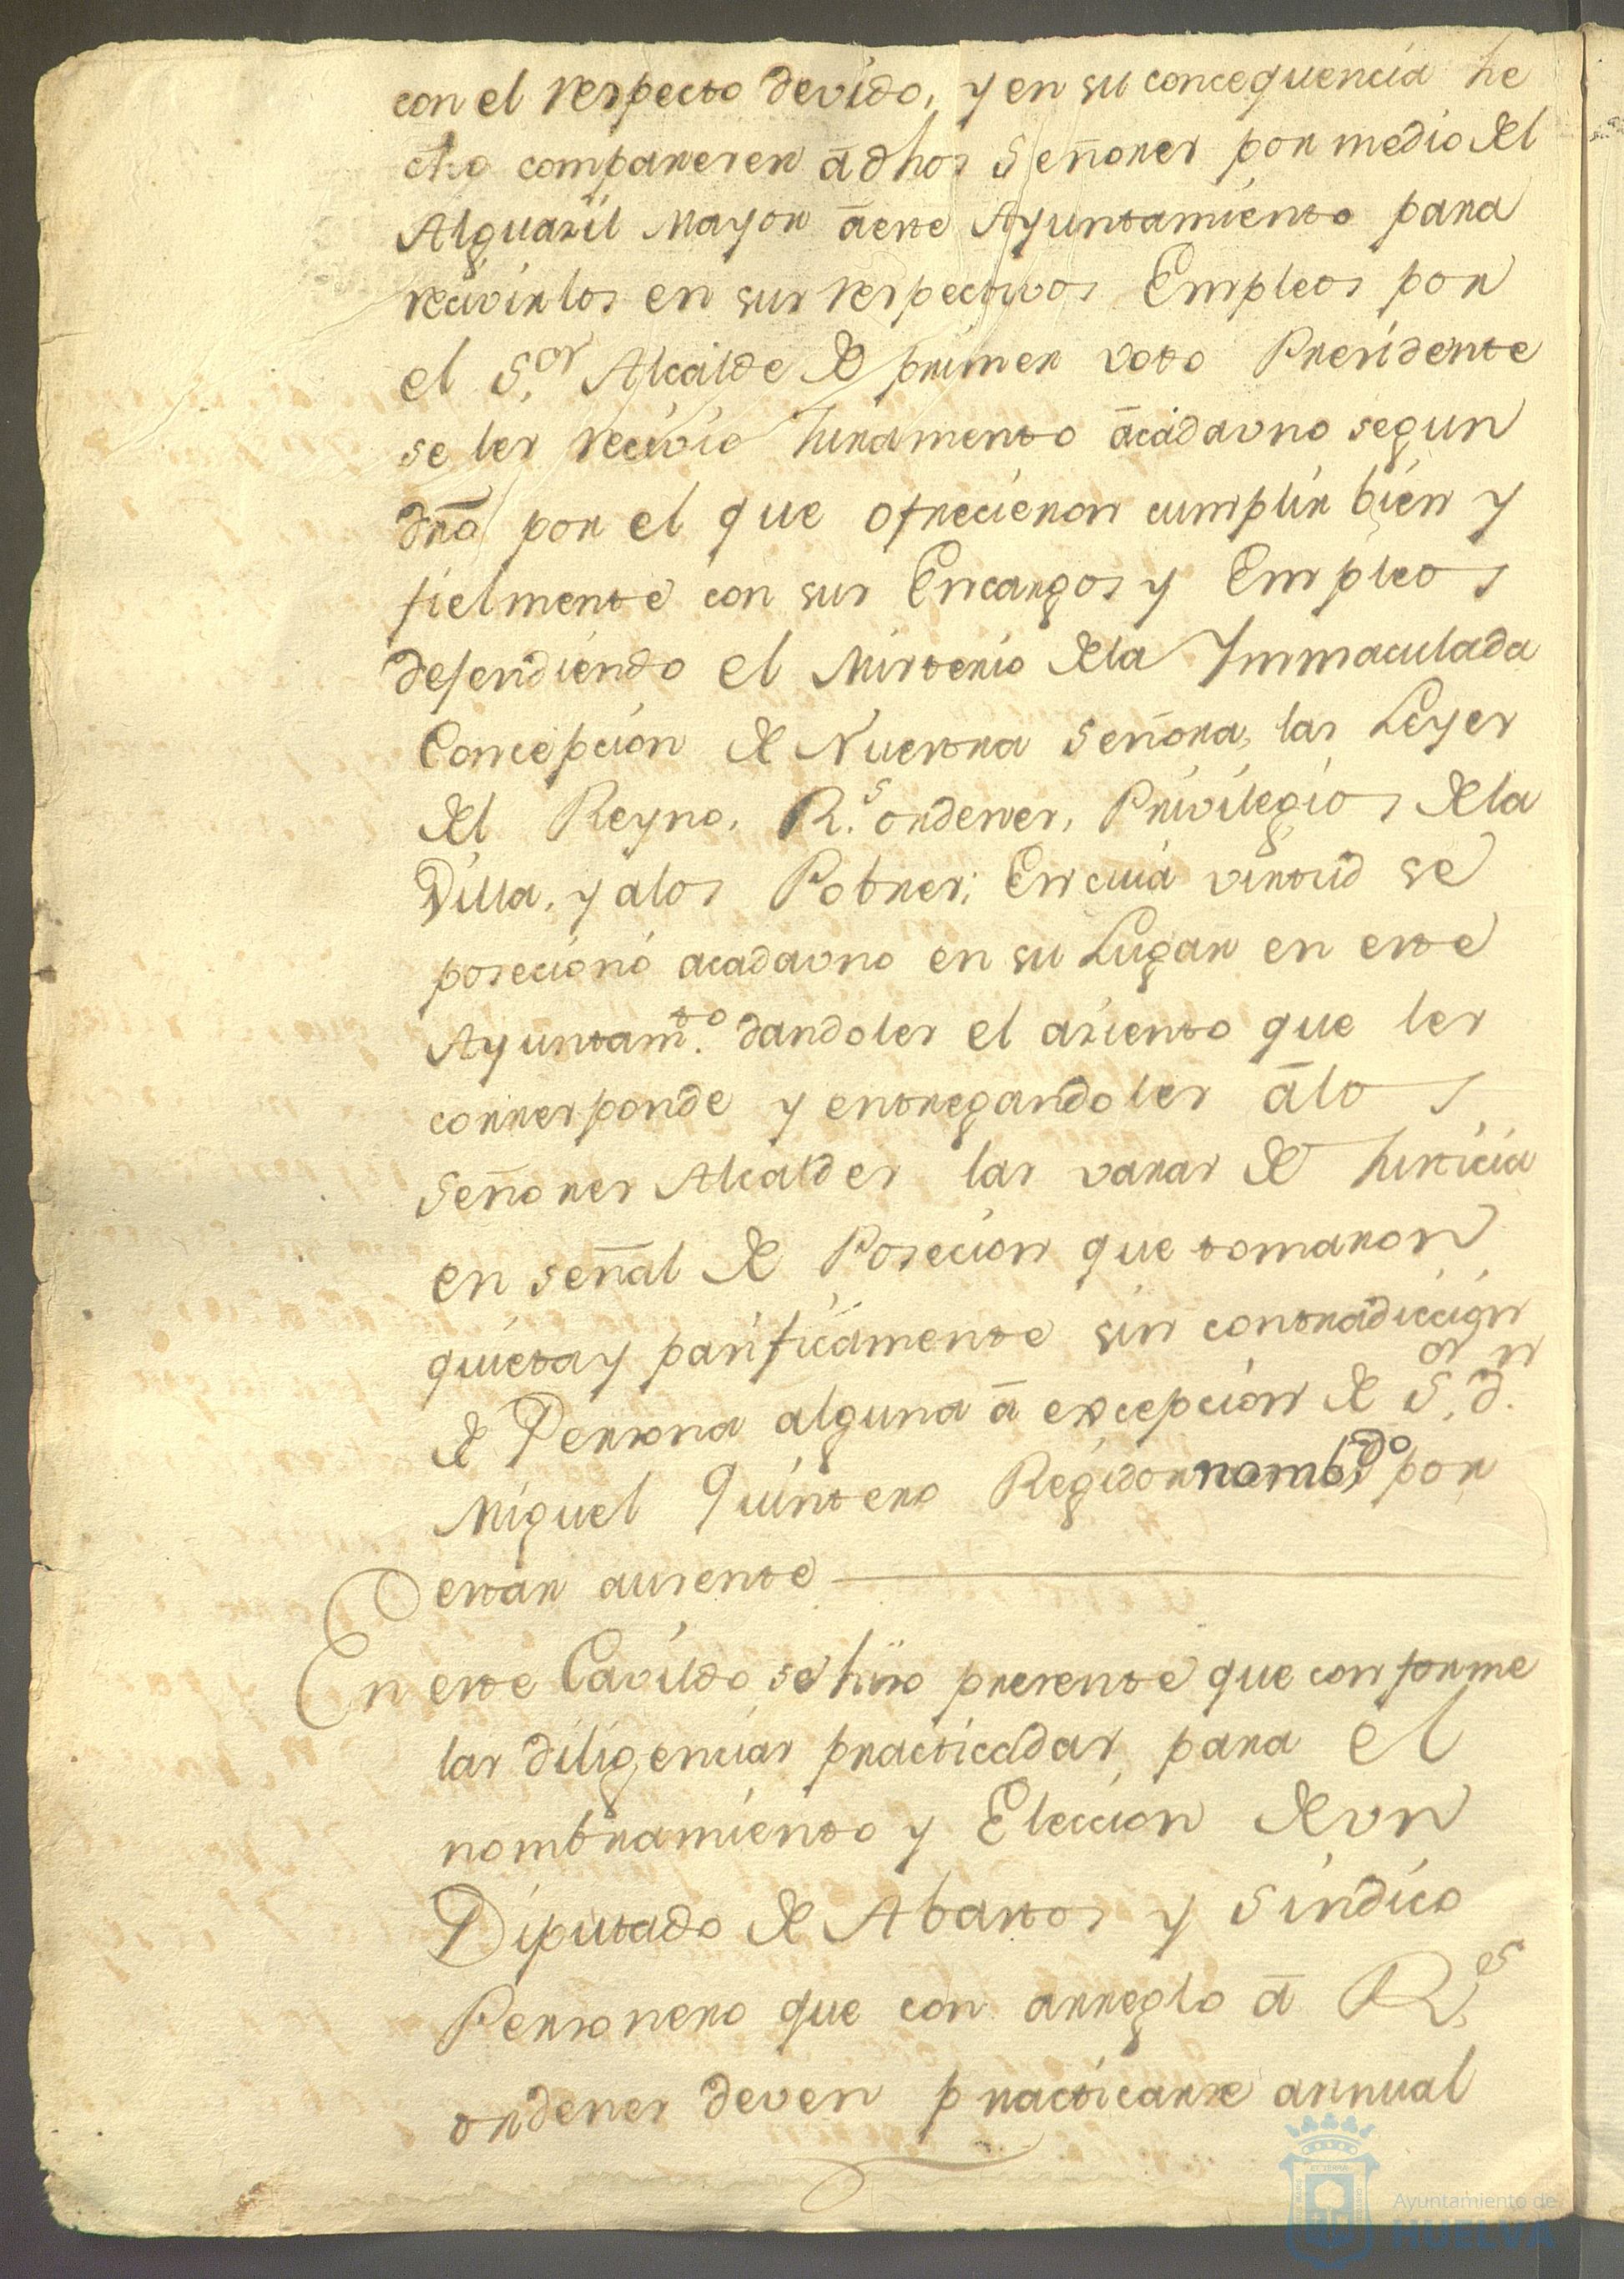 con el respecto devido, y en su concequencia he
cho compareser á dhos Señores por medio del
Alguazil Mayor á este Ayuntamiento para
recivirlos en sus respectivos Empleos por
el S.or Alcalde de primer voto Presidente
se les recivio Juramento ácadauno segun
dro por el que ofrecieron cumplir bien y
fielmente con sus Encargos y Empleos
defendiendo el Misterio dela Ynmaculada
Concepcion de Nuestra Señora, las Leyes
del Reyno, R.s ordenes, Privilegios dela
Villa, y alos Pobres; En cuia virtud se
posecionó acadauno en su Lugar en este
Ayuntam.to dandoles el asiento que les
corresponde y entregandoles álos
Señores Alcaldes las varas de Justicia
en señal de Posecion que tomaron
quieta y pasificamente sin contradiccion
de Persona alguna á excepcion de S.or d.n
Miguel Quintero Regidor nombrdo por
estar ausente
En este Cavildo se hizo presente que conforme
las diligencias practicadas, para el
nombramiento y Eleccion de vn
Diputado de Abastos y Sindico
Personero que con arreglo á R.es
ordenes deven practicarse annual
Ayuntamiento de
HUELVA